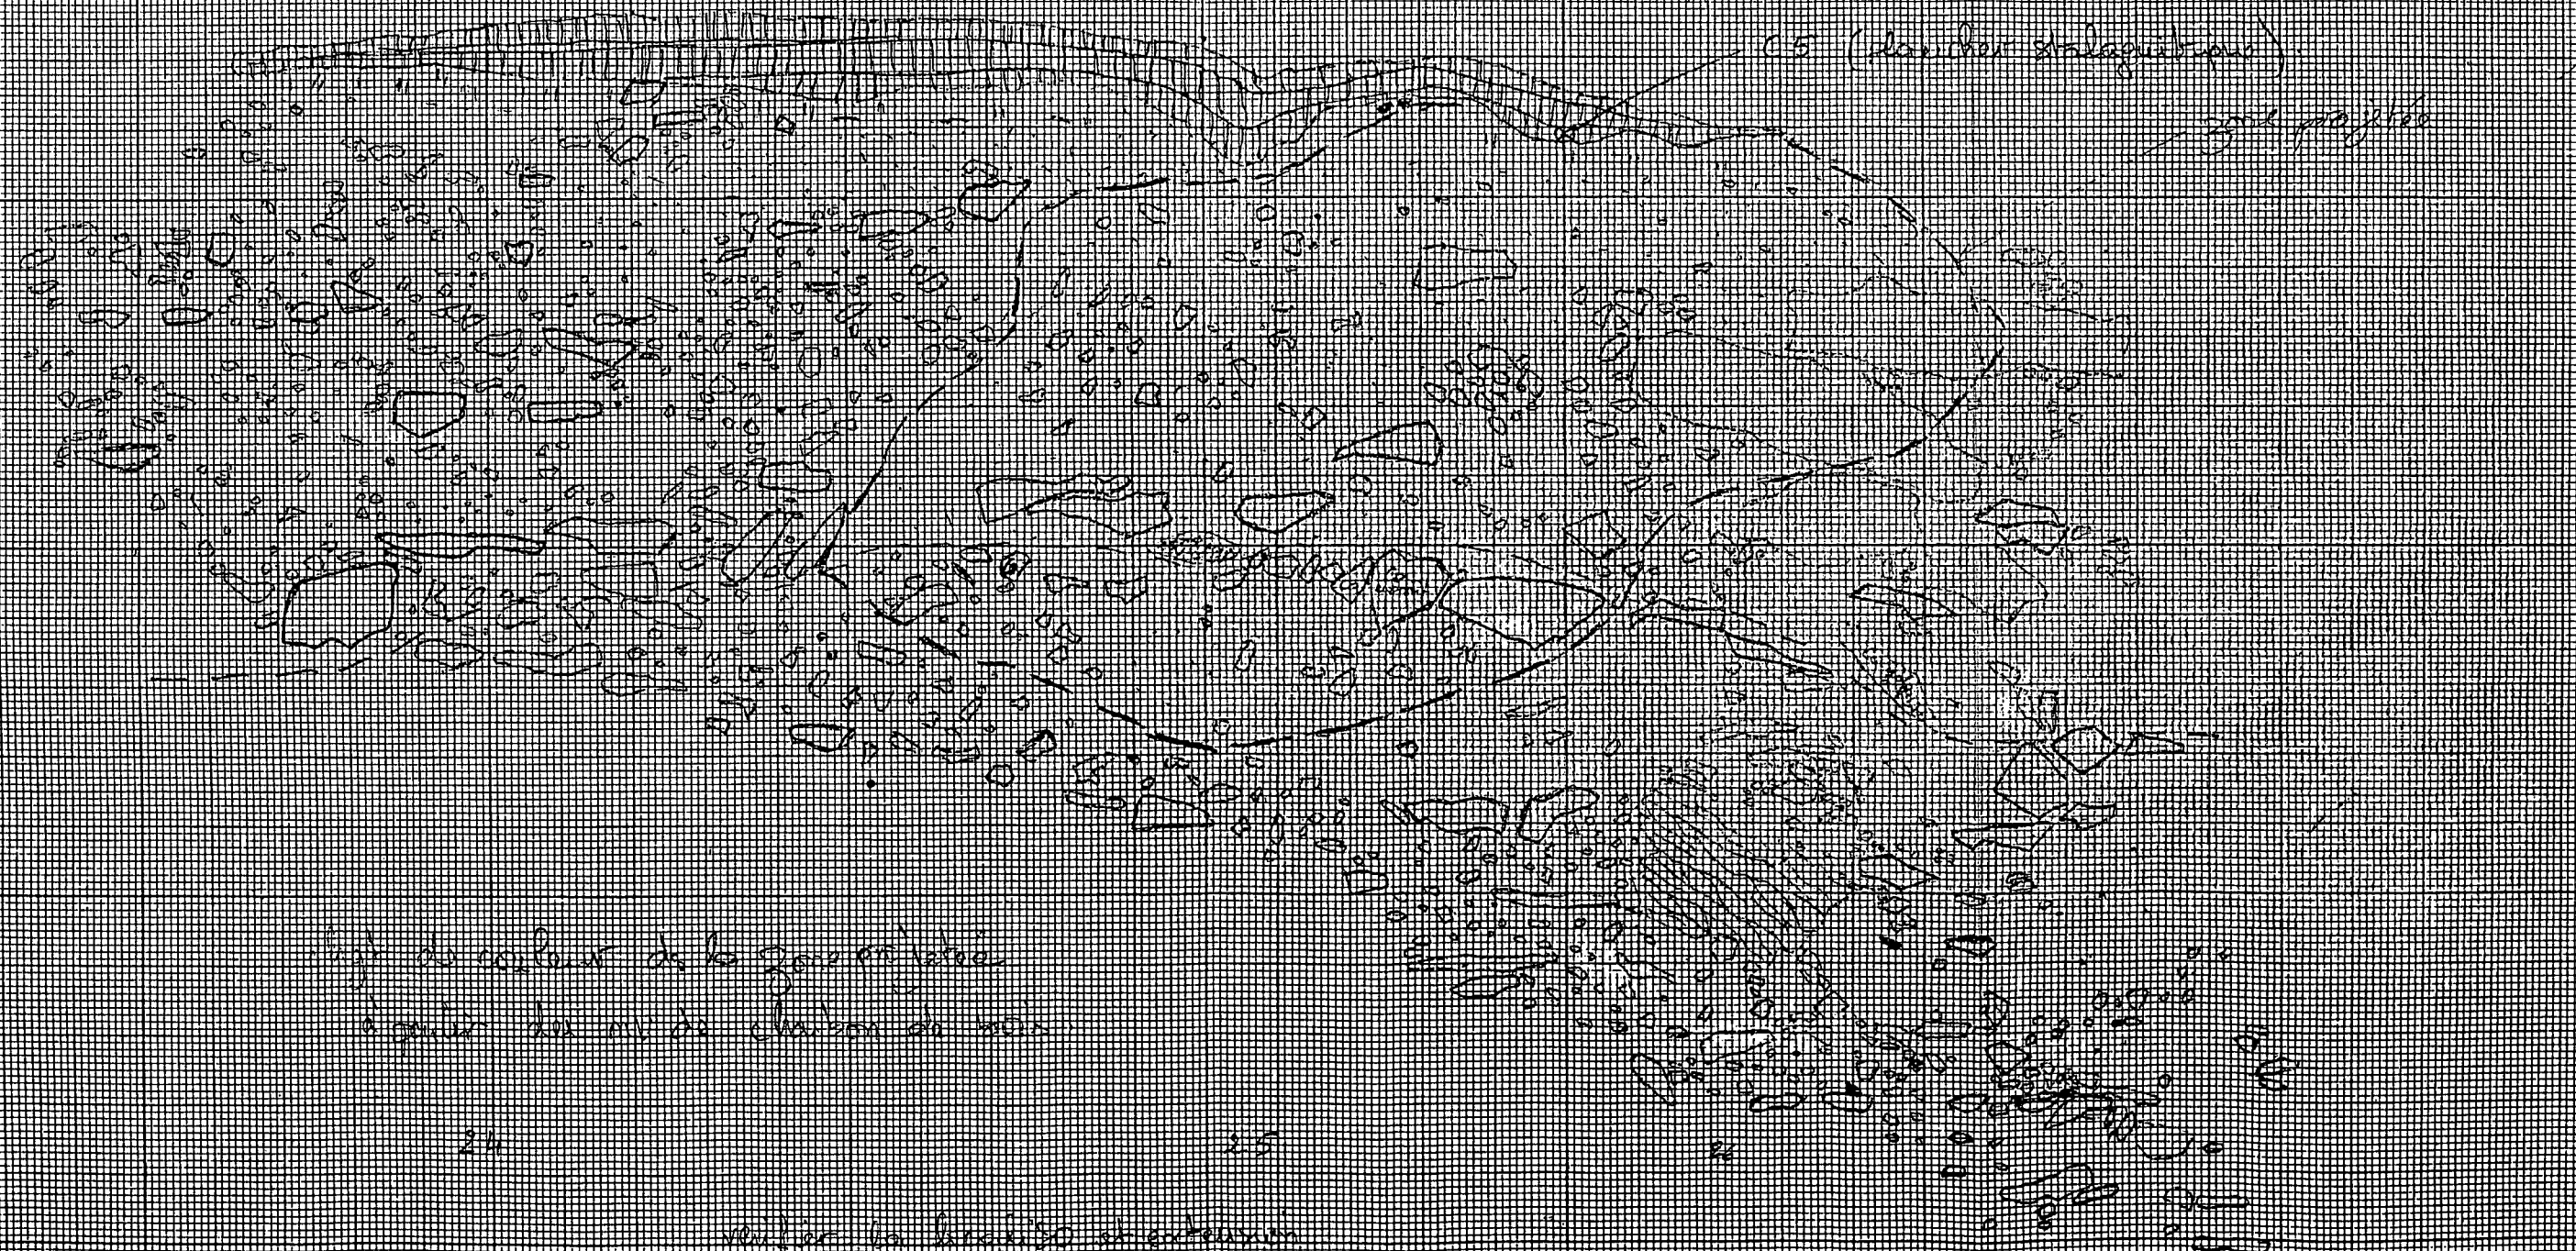 C5 (plancher stalagmitique)
zone projetée
de couleur de la zone projetée
à partir des niv de charbon de bois
24
25
26
vérifier la localisº et extension